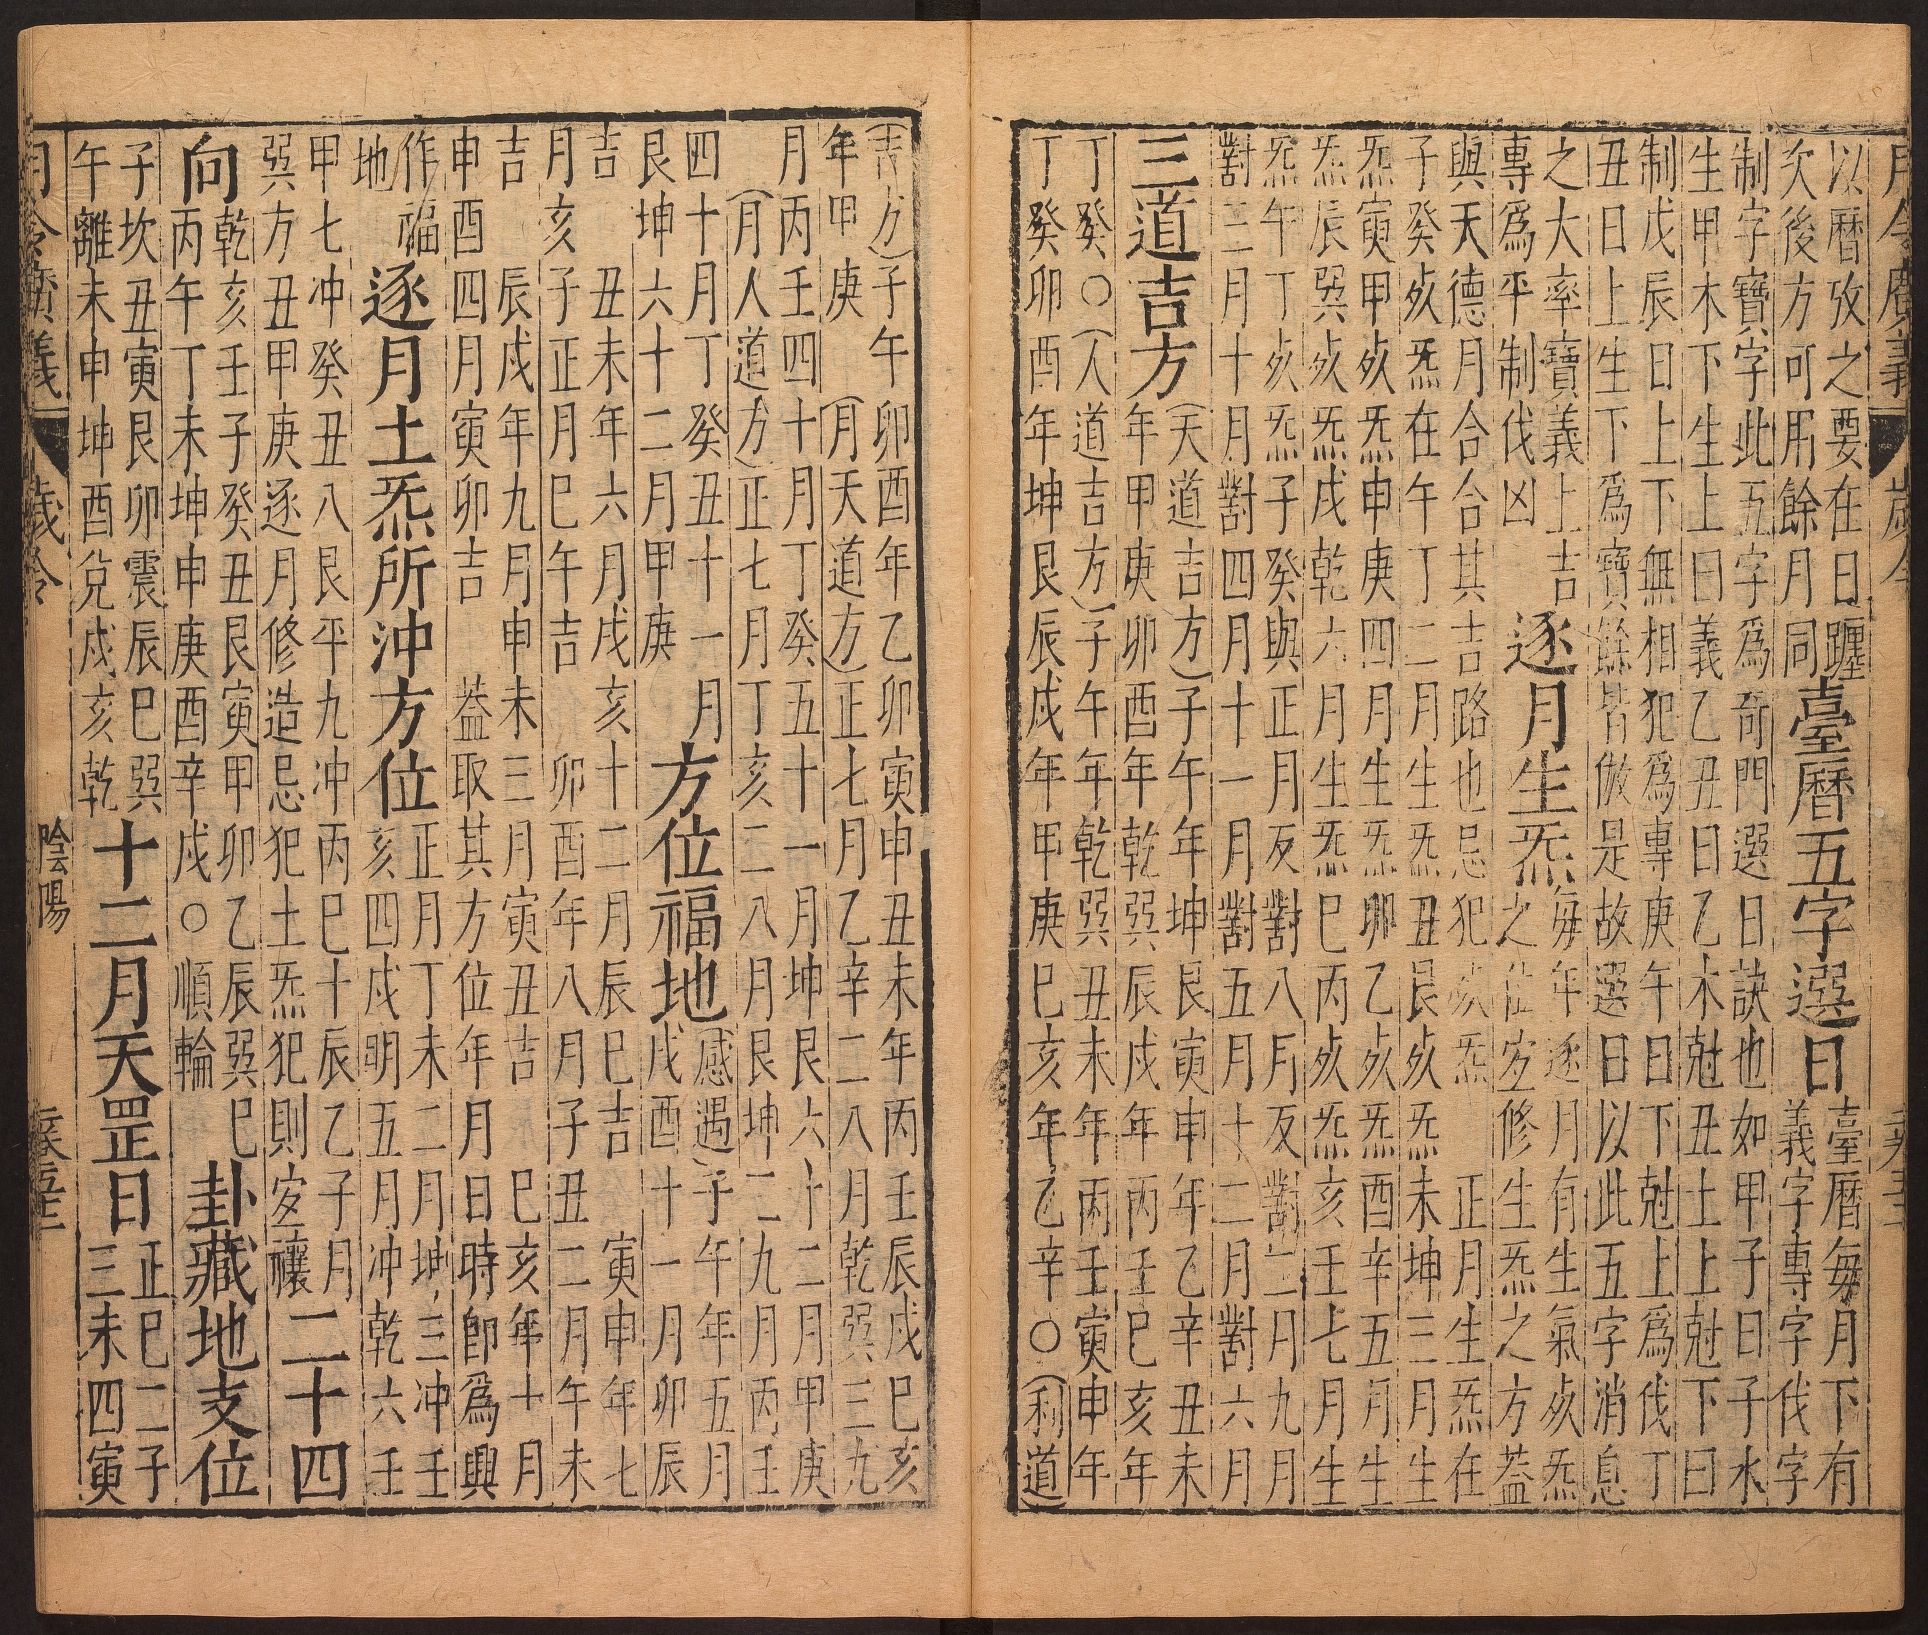 月令廣義 歲令
以曆攷之要在日躔
次後方可用餘月同
臺曆五字選日
臺曆每月下有
義字專字伐字
制字寶字此五字為奇門選日訣也如甲子日子水
生甲木下生上曰義乙丑日乙木尅丑土上尅下曰
制戊辰日上下無相犯為專庚午日下尅上為伐丁
丑日上生下為寶餘皆倣是故選日以此五字消息
之大率寶義上吉
專為平制伐凶
逐月生炁
每年逐月有生氣㱥炁
之位宜修生炁之方葢
與天德月合合其吉路也忌犯㱥炁 正月生炁在
子癸㱥炁在午丁二月生炁丑艮㱥炁未坤三月生
炁寅甲㱥炁申庚四月生炁卯乙㱥炁酉辛五月生
炁辰巽㱥炁戌乾六月生炁巳丙㱥炁亥壬七月生
炁午丁㱥炁子癸與正月反對八月反對二月九月
對三月十月對四月十一月對五月十二月對六月
三道吉方
(天道吉方)子午年坤艮寅申年乙辛丑未
年甲庚卯酉年乾巽辰戌年丙壬巳亥年
丁癸○(人道吉方)子午年乾巽丑未年丙壬寅申年
丁癸卯酉年坤艮辰戌年甲庚巳亥年乙辛○(利道
吉方)子午 卯酉年乙卯寅申丑未年丙壬辰戌巳亥
年甲庚 (月天道方)正七月乙辛二八月乾巽三九
月丙壬四十月丁癸五十一月坤艮六十二月甲庚
(月人道方)正七月丁亥二八月艮坤二九月丙壬
四十月丁癸丑十一月
艮坤六十二月甲庚
方位福地
(感遇)子午年五月
戌酉十一月卯辰
吉 丑未年六月戌亥十二月辰巳吉 寅申年七
月亥子正月巳午吉 卯酉年八月子丑二月午未
吉 辰戌年九月申未三月寅丑吉 巳亥年十月
申酉四月寅卯吉 葢取其方位年月日時卽為興
作福
地
逐月土炁所冲方位
正月丁未二月坤三冲壬
亥四戌明五月冲乾六壬
甲七冲癸丑八艮平九冲丙巳十辰乙子月
巽方丑甲庚逐月修造忌犯土炁犯則宜禳
二十四
向
乾亥壬子癸丑艮寅甲卯乙辰巽巳
丙午丁未坤申庚酉辛戌○順輪
卦藏地支位
子坎丑寅艮卯震辰巳巽
午離未申坤酉兌戌亥乾
十二月天罡日
正巳二子
三未四寅
月令廣義 歲令 陰陽